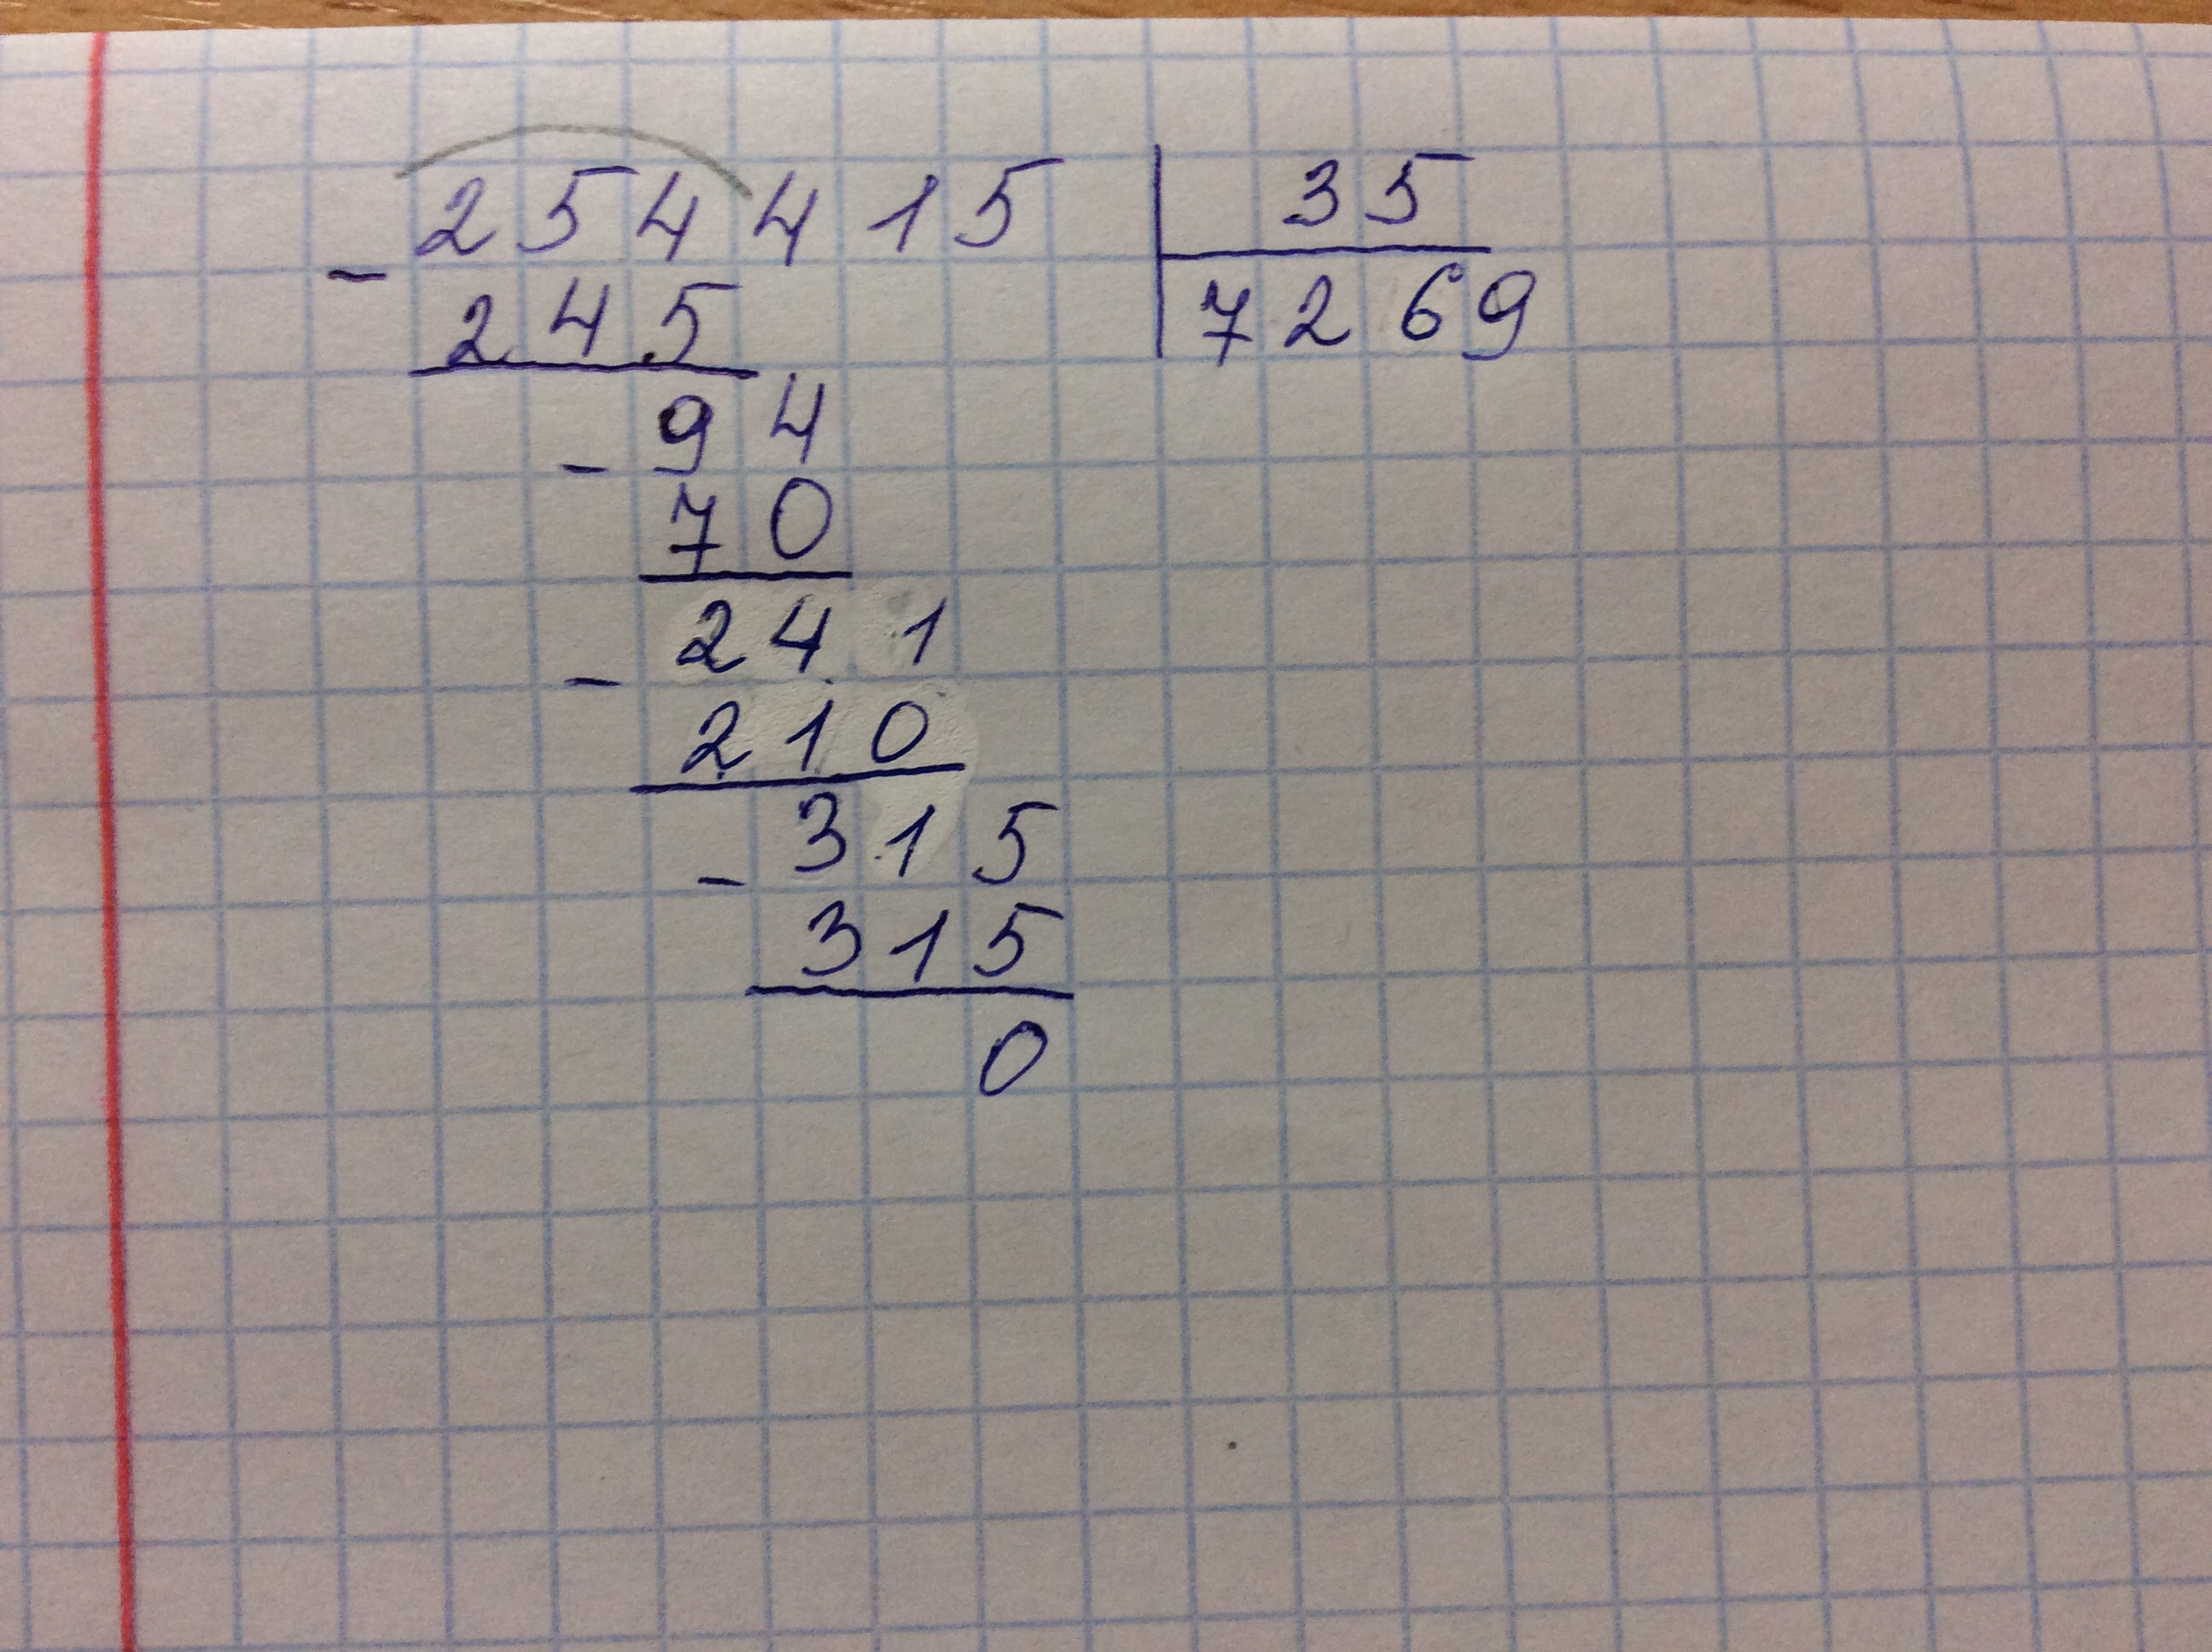 254415 35
- 245 7269
94
- 70
241
- 210
315
- 315
0